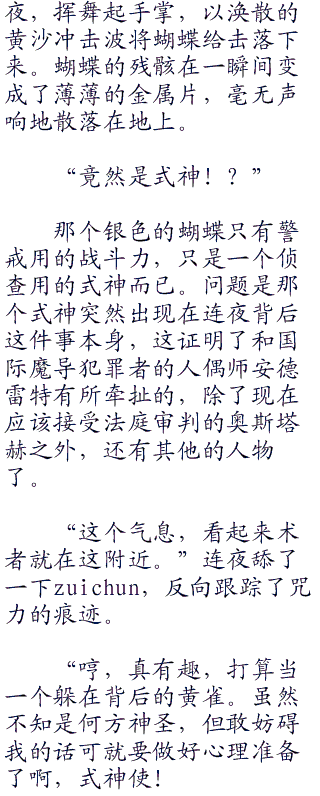 夜，挥舞起手掌，以涣散的
黄沙冲击波将蝴蝶给击落下
来。蝴蝶的残骸在一瞬间变
成了薄薄的金属片，毫无声
响地散落在地上。
“竟然是式神！？”
那个银色的蝴蝶只有警
戒用的战斗力，只是一个侦
查用的式神而已。问题是那
个式神突然出现在连夜背后
这件事本身，这证明了和国
际魔导犯罪者的人偶师安德
雷特有所牵扯的，除了现在
应该接受法庭审判的奥斯塔
赫之外，还有其他的人物
了。
“这个气息，看起来术
者就在这附近。”连夜舔了
一下zuichun，反向跟踪了咒
力的痕迹。
“哼，真有趣，打算当
一个躲在背后的黄雀。虽然
不知是何方神圣，但敢妨碍
我的话可就要做好心理准备
了啊，式神使！